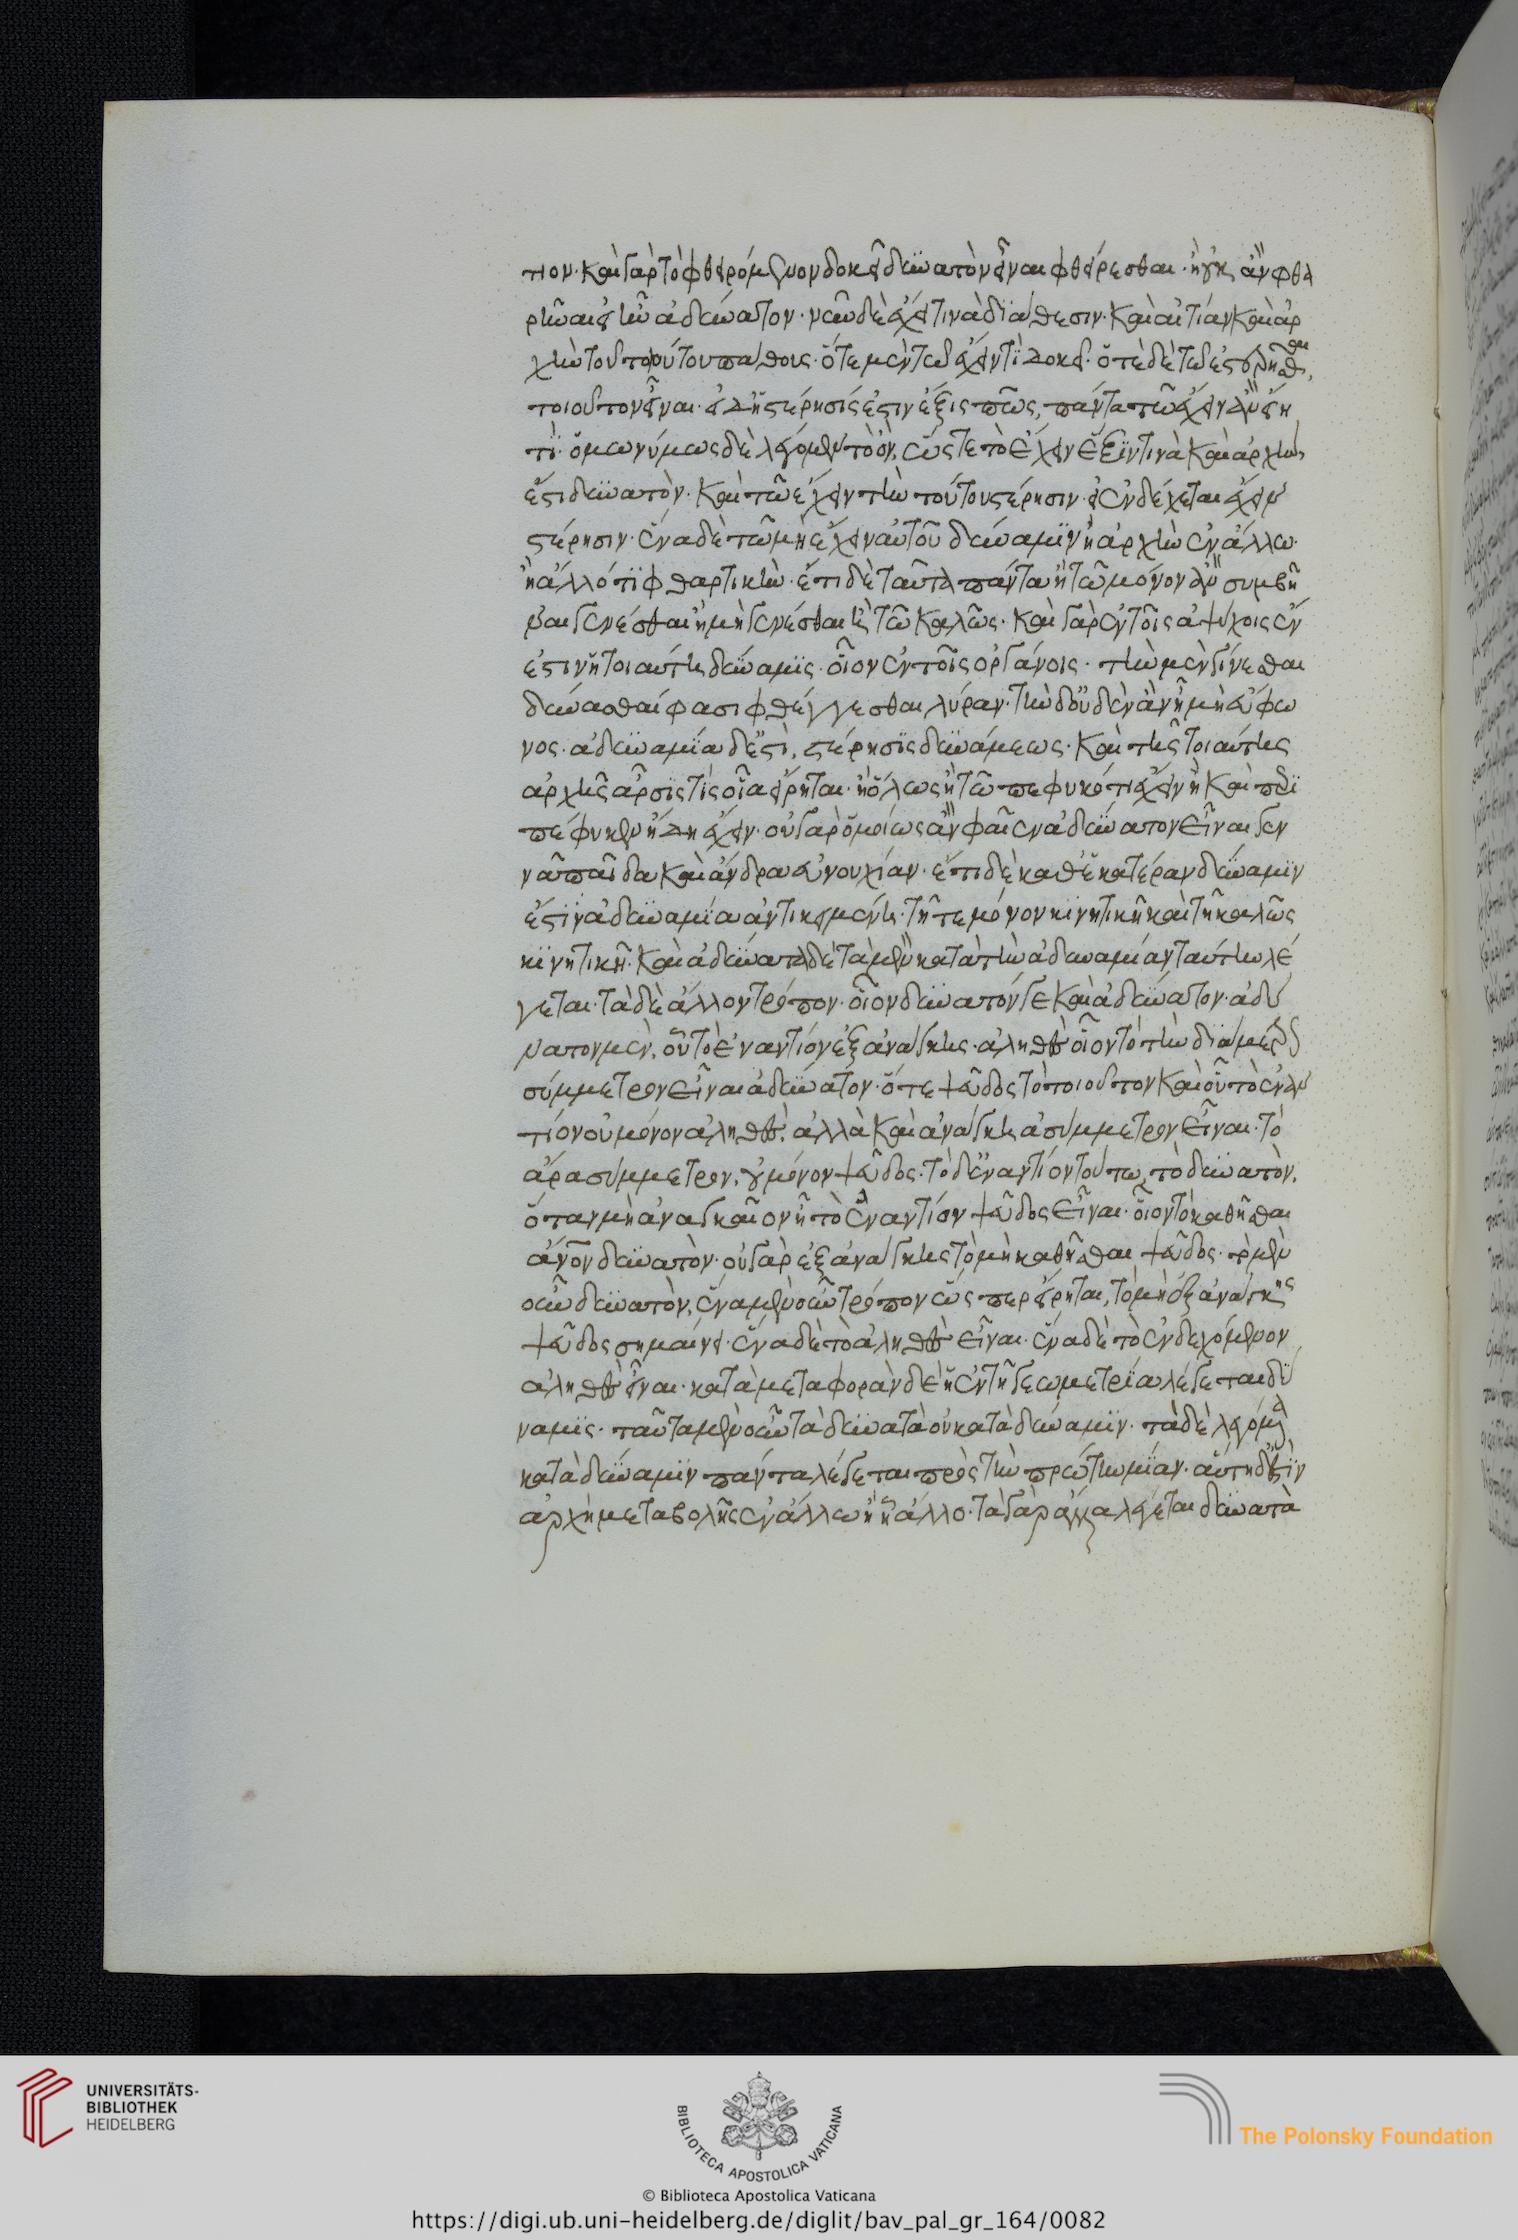 τιον· καὶ γὰρ τὸ φθειρόμενον δοκεῖ δυνατὸν εἶναι φθείρεσθαι· ἢ οὐκ ἂν φθα
ρῆναι εἰ ἦν ἀδύνατον· νῦν δὲ ἔχει τινὰ διάθεσιν· καὶ αἰτίαν καὶ ἀρ
χὴν τοῦ τοιούτου πάθους· ὅτε μὲν τῶ ἔχειν τὶ δοκεῖ· ὅτε δὲ τῶ ἐστερῆσθαι
τοιοῦτον εἶναι· εἰ δ' ἡ στέρησίς ἐστιν ἕξις πῶς, πάντα τῶ ἔχειν ἂν εἴη
τὶ· ὁμωνύμως δὲ λεγόμεν τὸ ὄν, ὥστε τὸ ἔχειν ἕξιν τινὰ καὶ ἀρχὴν
ἔστι δυνατὸν· καὶ τῶ ἔχειν τὴν τούτου στέρησιν· εἰ ἐνδέχεται ἔχειν
στέρησιν· ἕνα δὲ τῶ μὴ ἔχειν αὐτοῦ δύναμιν ἢ ἀρχὴν ἐν ἄλλω·
ἢ ἄλλό τι φθαρτικὴν· ἔτι δὲ ταῦτα πάντα ἢ τῶ μόνον ἂν συμβῆ
ναι γενέσθαι ἢ μὴ γενέσθαι ἢ τῶ καλῶς· καὶ γὰρ ἐν τοῖς ἀψύχοις ἔν
ἐστιν ἡ τοιαύτη δύναμις· οἷον ἐν τοῖς ὀργάνοις· τὴν μὲν γίνεσθαι
δύνασθαί φασι φθέγγεσθαι λύραν· τὴν δ' οὐδὲν ἂν ἦ μὴ εὔφω
νος· ἀδυναμία δ' ἐστὶ, στέρησις δυνάμεως· καὶ τῆς τοιαύτης
ἀρχῆς ἆρσίς τις οἵα εἴρηται· ἢ ὅλως ἢ τῶ πεφυκότι ἔχειν ἢ καὶ ὅτε
πέφυκεν ἤδη ἔχειν· οὐ γὰρ ὁμοίως ἂν φαῖεν ἀδύνατον εἶναι γεν
νᾶν παῖδα καὶ ἄνδρα εὐνουχίαν· ἔτι δὲ καθ' ἑκατέραν δύναμιν
ἐστὶν ἀδυναμία ἀντικειμένη· τῆ τε μόνον κινητικῆ καὶ τῆ καλῶς
κινητικῆ· καὶ ἀδύνατα δὲ τὰ μὲν κατὰ τὴν ἀδυναμίαν ταύτην λέ
γεται· τὰ δὲ ἄλλον τρόπον· οἷον δυνατόν γε καὶ ἀδύνατον· ἀδύ
νατον μὲν, οὗ τὸ ἐναντίον ἐξ ἀνάγκης· ἀληθὲς οἷον τὸ τὴν διάμετρον
σύμμετρον εἶναι ἀδύνατον· ὅτι ψεῦδος τὸ τοιοῦτον καὶ οὗ τὸ ἐναν
τίον οὐ μόνον ἀληθὲς, ἀλλὰ καὶ ἀνάγκη ἀσύμμετρον εἶναι· τὸ
ἄρα σύμμετρον, οὐ μόνον ψεῦδος· τὸ δ' ἐναντίον τούτω, τὸ δυνατὸν,
ὅταν μὴ ἀναγκαῖον ἦ τὸ ἐναντίον ψεῦδος εἶναι· οἷον τὸ καθῆσθαι
ἄνον δυνατὸν· οὐ γὰρ ἐξ ἀνάγκης τὸ μὴ καθῆσθαι ψεῦδος· τὸ μὲν
οὖν δυνατὸν, ἕνα μὲν οὖν τρόπον ὥς περ εἴρηται, τὸ μὴ ἐξ ἀνάγκης
ψεῦδος σημαίνει· ἕνα δὲ τὸ ἀληθὲς εἶναι· ἕνα δὲ τὸ ἐνδεχόμενον
ἀληθὲς εἶναι· κατὰ μεταφορὰν δὲ ἡ ἐν τῆ γεωμετρία λέγεται δύ
ναμις· ταῦτα μὲν οὖν τὰ δυνατὰ οὐ κατὰ δύναμιν· τὰ δὲ λεγόμενα
κατὰ δύναμιν πάντα λέγεται πρὸς τὴν πρώτην μίαν· αὕτη δ' ἐστὶν
ἀρχὴ μεταβολῆς ἐν ἄλλω ἢ ἧ ἄλλο· τὰ γὰρ ἄλλα λέγεται δυνατὰ
UNIVERSITÄTS-
BIBLIOTHEK
HEIDELBERG
BIBLIOTECA APOSTOLICA VATICANA
© Biblioteca Apostolica Vaticana
The Polonsky Foundation
https://digi.ub.uni-heidelberg.de/diglit/bav_pal_gr_164/0082